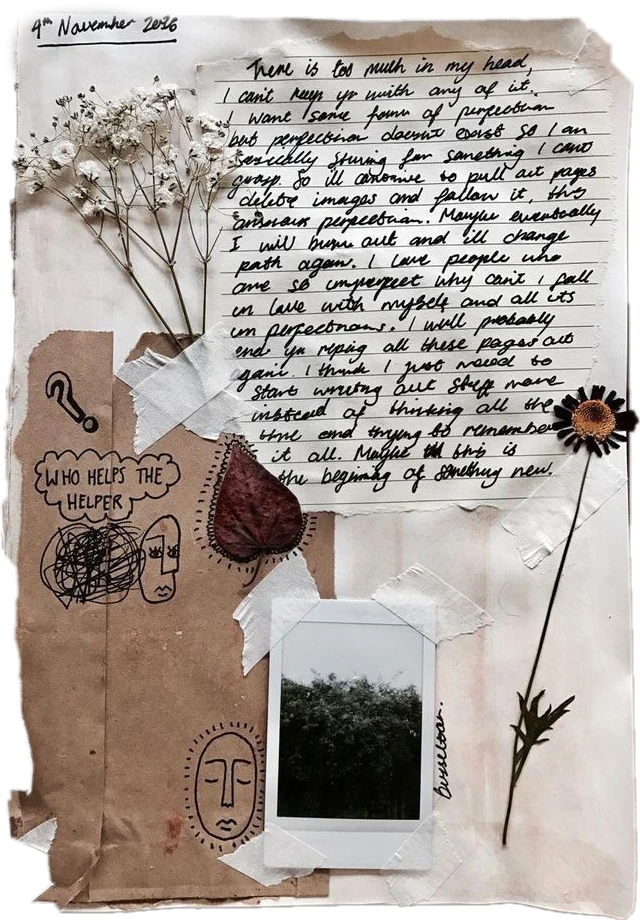 4th November 2016
There is too much in my head,
I can't keep up with any of it.
I want some form of perfection
but perfection doesn't exist so I am
basically striving for something I cant
grasp. So ill continue to pull out pages
delete images and follow it, this
perfection. Maybe eventually
I will burn out and ill change
path again. I love people who
are so imperfect why can't I fall
in love with myself and all its
imperfections. I will probably
end up riping all these pages out
again. I think I just need to
start writing out stuff more
instead of thinking all the
time and trying to remember
it all. Maybe this is
the beginning of something new.
?
WHO HELPS THE
HELPER